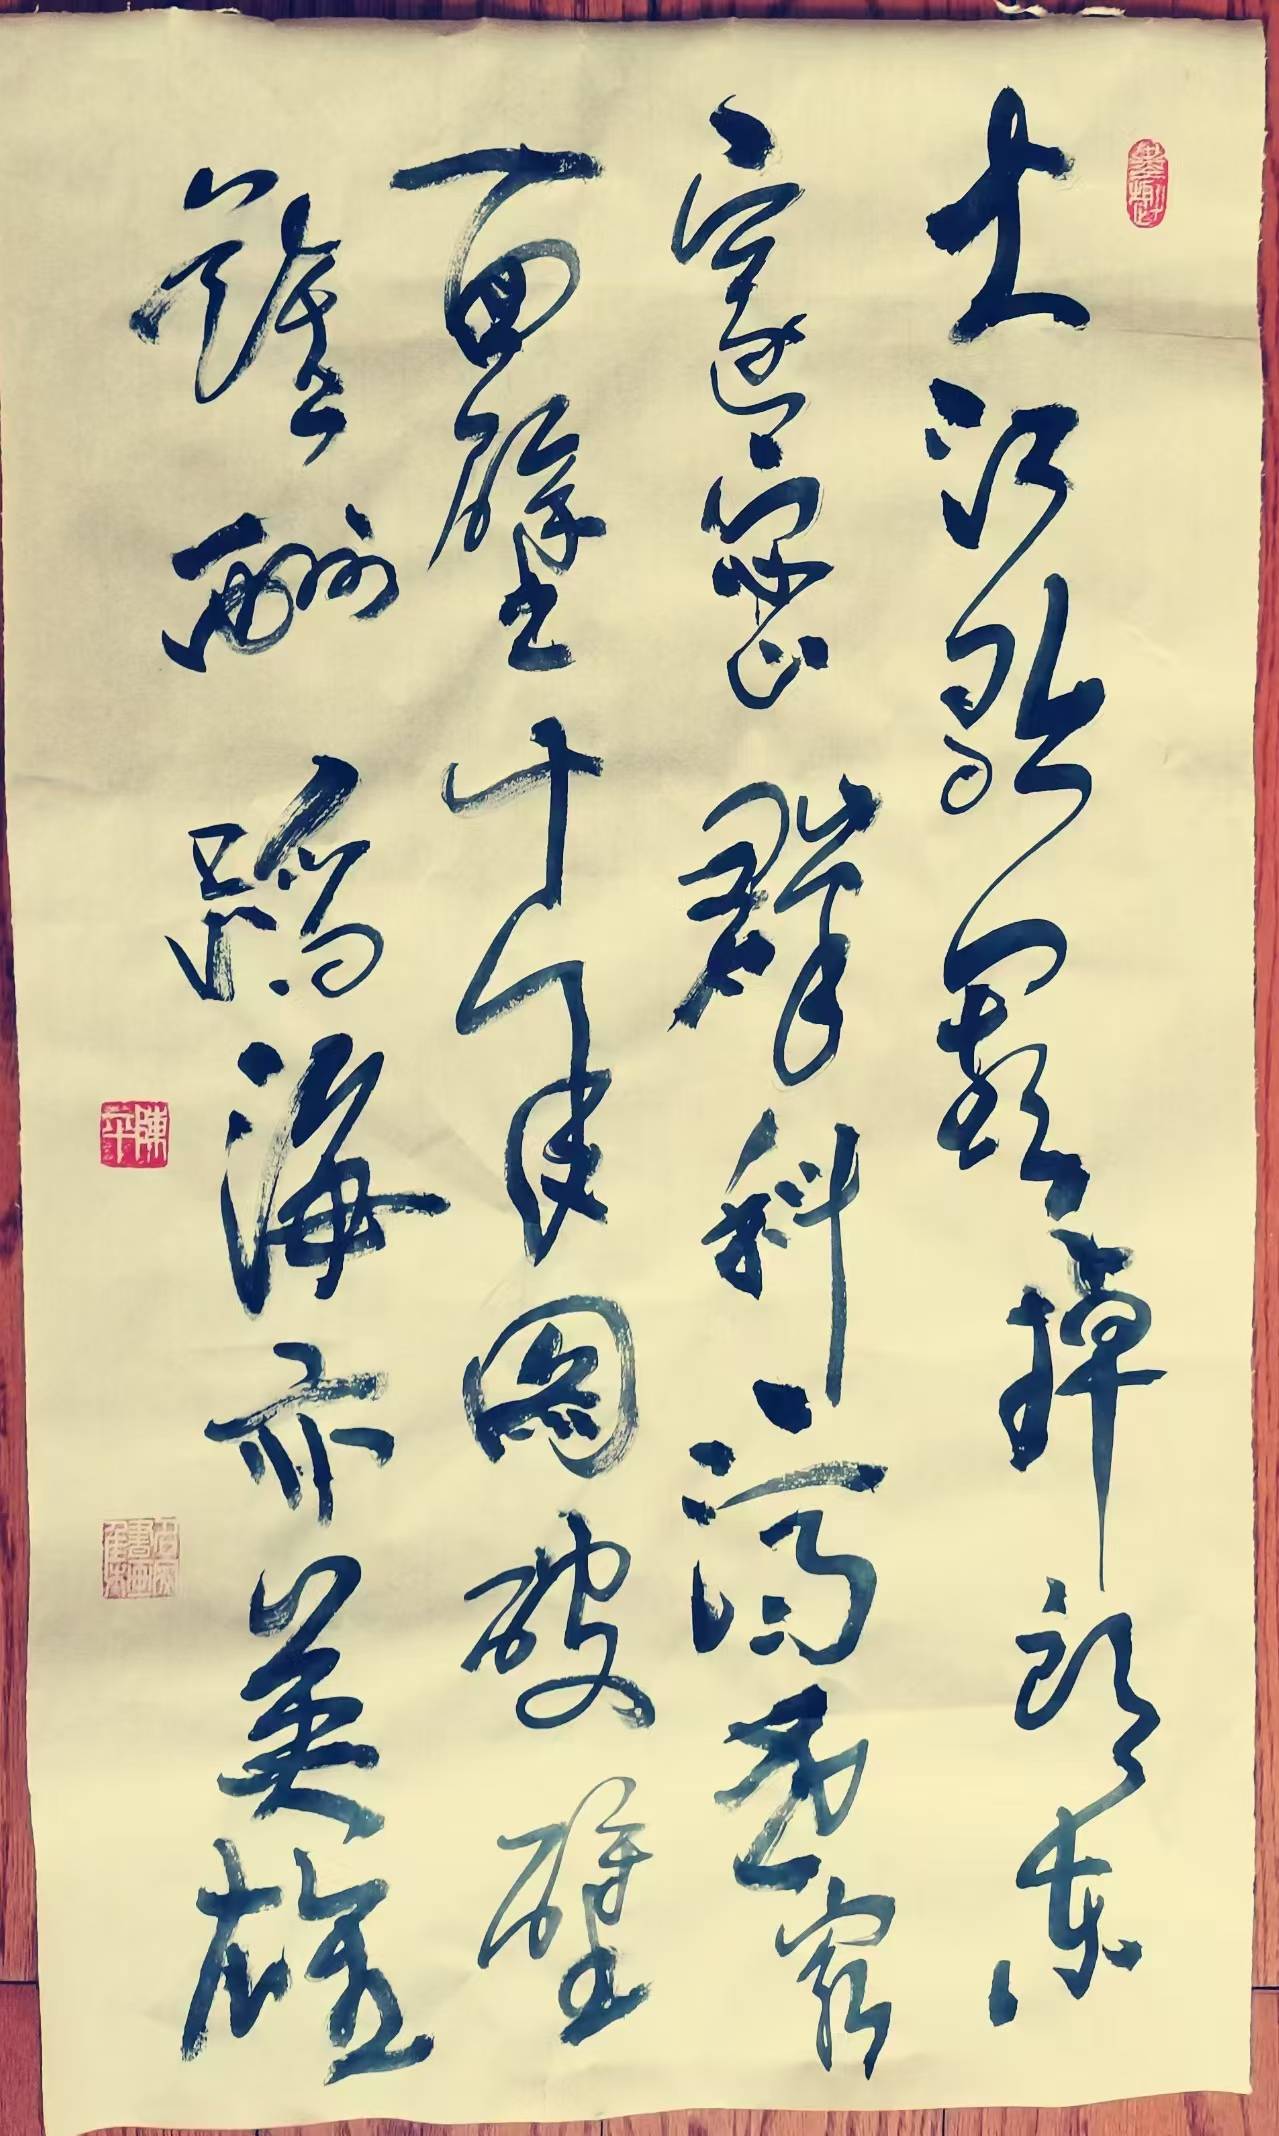 大江歌罢掉头东
邃密群科济世穷
面壁十年图破壁
难酬蹈海亦英雄
陳平